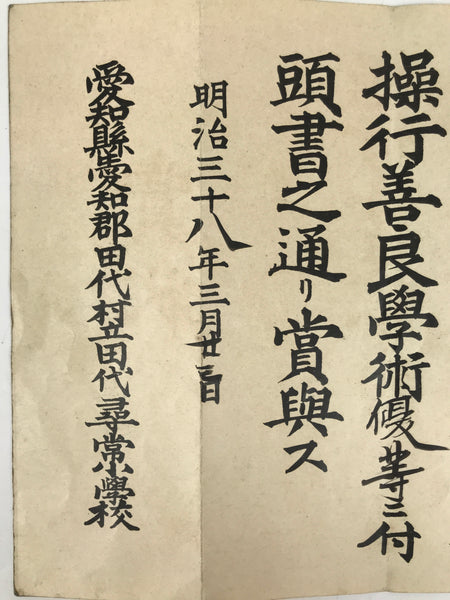 操行善良學術優等ニ付
頭書之通リ賞與ス
明治三十八年三月廿三日
愛知縣愛知郡田代村立田代尋常小學校